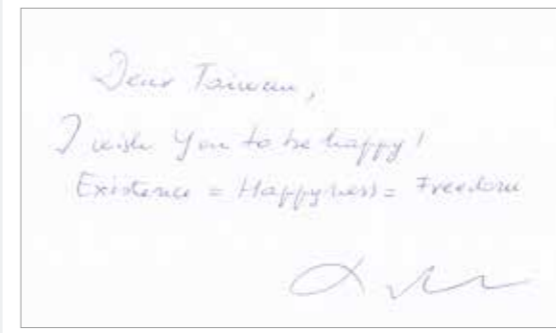 Dear Taiwan,
I wish You to be happy!
Existence = Happyness = Freedom